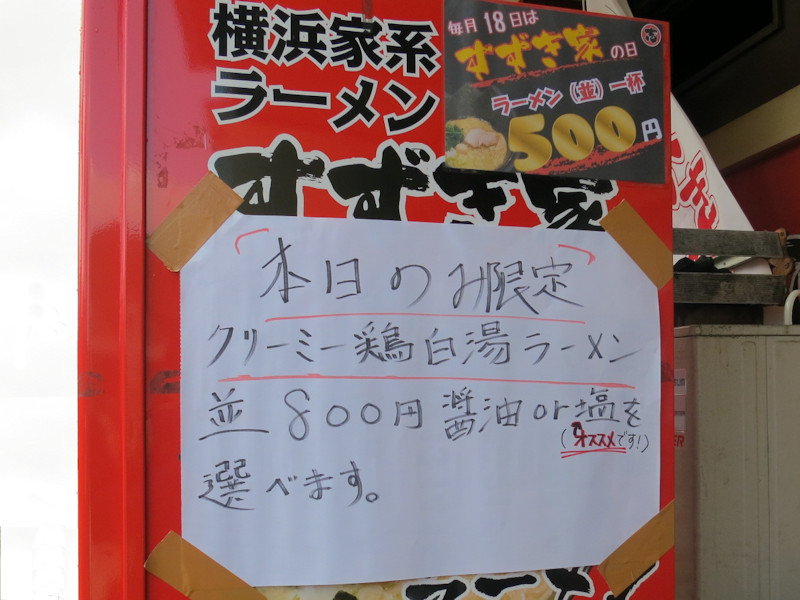 横浜家系
ラーメン
毎月18日は
すずき家の日
ラーメン(並)一杯
500円
すずき家
本日のみ限定
クリーミー鶏白湯ラーメン
並 800円 醤油or塩を
(オススメです!)
選べます。
ラーメン